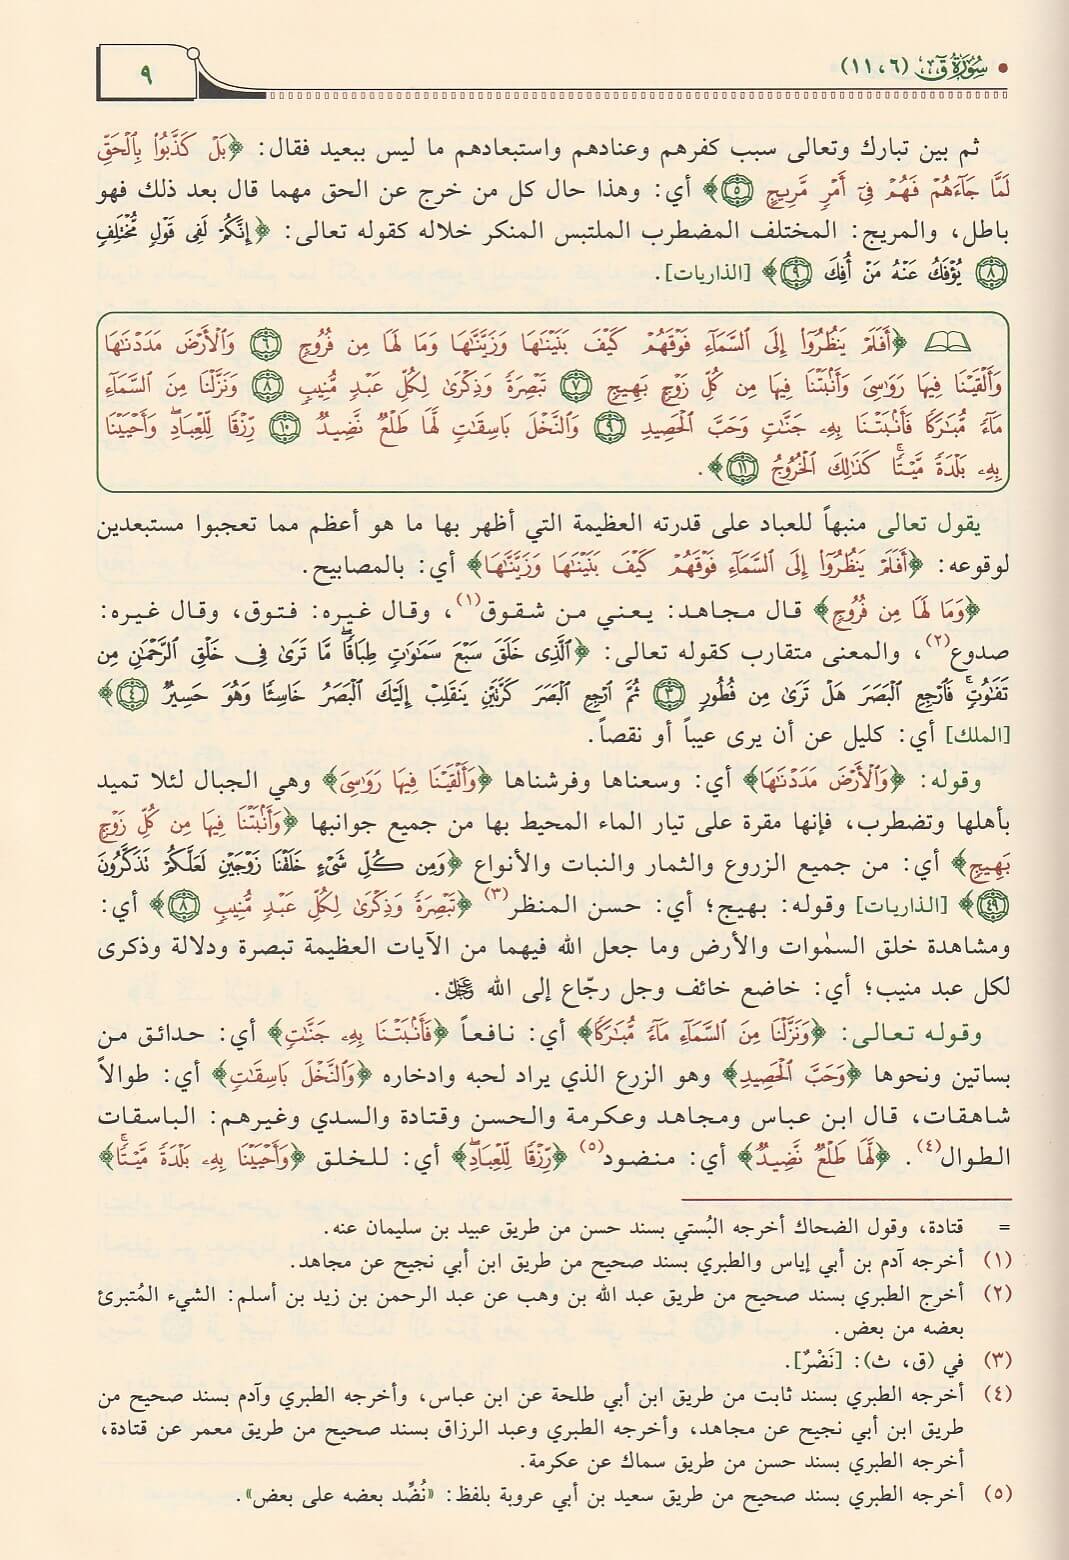 سُورَةُ قٓ (٦، ١١)
٩
ثم بين تبارك وتعالى سبب كفرهم وعنادهم واستبعادهم ما ليس ببعيد فقال: ﴿بَلْ كَذَّبُوا۟ بِٱلْحَقِّ
لَمَّا جَآءَهُمْ فَهُمْ فِىٓ أَمْرٍ مَّرِيجٍ ٥﴾ أي: وهذا حال كل من خرج عن الحق مهما قال بعد ذلك فهو
باطل، والمريج: المختلف المضطرب الملتبس المنكر خلاله كقوله تعالى: ﴿إِنَّكُمْ لَفِى قَوْلٍ مُّخْتَلِفٍ
٨ يُؤْفَكُ عَنْهُ مَنْ أُفِكَ ٩﴾ [الذاريات].
﴿أَفَلَمْ يَنظُرُوٓا۟ إِلَى ٱلسَّمَآءِ فَوْقَهُمْ كَيْفَ بَنَيْنَٰهَا وَزَيَّنَّٰهَا وَمَا لَهَا مِن فُرُوجٍ ٦ وَٱلْأَرْضَ مَدَدْنَٰهَا
وَأَلْقَيْنَا فِيهَا رَوَٰسِىَ وَأَنۢبَتْنَا فِيهَا مِن كُلِّ زَوْجٍۭ بَهِيجٍ ٧ تَبْصِرَةً وَذِكْرَىٰ لِكُلِّ عَبْدٍ مُّنِيبٍ ٨ وَنَزَّلْنَا مِنَ ٱلسَّمَآءِ
مَآءً مُّبَٰرَكًا فَأَنۢبَتْنَا بِهِۦ جَنَّٰتٍ وَحَبَّ ٱلْحَصِيدِ ٩ وَٱلنَّخْلَ بَاسِقَٰتٍ لَّهَا طَلْعٌ نَّضِيدٌ ١٠ رِّزْقًا لِّلْعِبَادِ ۖ وَأَحْيَيْنَا
بِهِۦ بَلْدَةً مَّيْتًا ۚ كَذَٰلِكَ ٱلْخُرُوجُ ١١﴾.
يقول تعالى منبهاً للعباد على قدرته العظيمة التي أظهر بها ما هو أعظم مما تعجبوا مستبعدين
لوقوعه: ﴿أَفَلَمْ يَنظُرُوٓا۟ إِلَى ٱلسَّمَآءِ فَوْقَهُمْ كَيْفَ بَنَيْنَٰهَا وَزَيَّنَّٰهَا﴾ أي: بالمصابيح.
﴿وَمَا لَهَا مِن فُرُوجٍ﴾ قال مجاهد: يعني من شقوق(١)، وقال غيره: فتوق، وقال غيره:
صدوع(٢)، والمعنى متقارب كقوله تعالى: ﴿ٱلَّذِى خَلَقَ سَبْعَ سَمَٰوَٰتٍ طِبَاقًا ۖ مَّا تَرَىٰ فِى خَلْقِ ٱلرَّحْمَٰنِ مِن
تَفَٰوُتٍ ۖ فَٱرْجِعِ ٱلْبَصَرَ هَلْ تَرَىٰ مِن فُطُورٍ ٣ ثُمَّ ٱرْجِعِ ٱلْبَصَرَ كَرَّتَيْنِ يَنقَلِبْ إِلَيْكَ ٱلْبَصَرُ خَاسِئًا وَهُوَ حَسِيرٌ ٤﴾
[الملك] أي: كليل عن أن يرى عيباً أو نقصاً.
وقوله: ﴿وَٱلْأَرْضَ مَدَدْنَٰهَا﴾ أي: وسعناها وفرشناها ﴿وَأَلْقَيْنَا فِيهَا رَوَٰسِىَ﴾ وهي الجبال لئلا تميد
بأهلها وتضطرب، فإنها مقرة على تيار الماء المحيط بها من جميع جوانبها ﴿وَأَنۢبَتْنَا فِيهَا مِن كُلِّ زَوْجٍۭ
بَهِيجٍ﴾ أي: من جميع الزروع والثمار والنبات والأنواع ﴿وَمِن كُلِّ شَىْءٍ خَلَقْنَا زَوْجَيْنِ لَعَلَّكُمْ تَذَكَّرُونَ
٤٩﴾ [الذاريات] وقوله: بهيج؛ أي: حسن المنظر(٣) ﴿تَبْصِرَةً وَذِكْرَىٰ لِكُلِّ عَبْدٍ مُّنِيبٍ ٨﴾ أي:
ومشاهدة خلق السمٰوات والأرض وما جعل الله فيهما من الآيات العظيمة تبصرة ودلالة وذكرى
لكل عبد منيب؛ أي: خاضع خائف وجل رجّاع إلى الله عَزَّوَجَلَّ.
وقوله تعالى: ﴿وَنَزَّلْنَا مِنَ ٱلسَّمَآءِ مَآءً مُّبَٰرَكًا﴾ أي: نافعاً ﴿فَأَنۢبَتْنَا بِهِۦ جَنَّٰتٍ﴾ أي: حدائق من
بساتين ونحوها ﴿وَحَبَّ ٱلْحَصِيدِ﴾ وهو الزرع الذي يراد لحبه وادخاره ﴿وَٱلنَّخْلَ بَاسِقَٰتٍ﴾ أي: طوالاً
شاهقات، قال ابن عباس ومجاهد وعكرمة والحسن وقتادة والسدي وغيرهم: الباسقات
الطوال(٤). ﴿لَّهَا طَلْعٌ نَّضِيدٌ﴾ أي: منضود(٥) ﴿رِّزْقًا لِّلْعِبَادِ ۖ﴾ أي: للخلق ﴿وَأَحْيَيْنَا بِهِۦ بَلْدَةً مَّيْتًا ۚ﴾
= قتادة، وقول الضحاك أخرجه البُستي بسند حسن من طريق عبيد بن سليمان عنه.
(١) أخرجه آدم بن أبي إياس والطبري بسند صحيح من طريق ابن أبي نجيح عن مجاهد.
(٢) أخرج الطبري بسند صحيح من طريق عبد الله بن وهب عن عبد الرحمن بن زيد بن أسلم: الشيء المُتبرئ
بعضه من بعض.
(٣) في (ق، ث): [نَضْرٌ].
(٤) أخرجه الطبري بسند ثابت من طريق ابن أبي طلحة عن ابن عباس، وأخرجه الطبري وآدم بسند صحيح من
طريق ابن أبي نجيح عن مجاهد، وأخرجه الطبري وعبد الرزاق بسند صحيح من طريق معمر عن قتادة،
أخرجه الطبري بسند حسن من طريق سماك عن عكرمة.
(٥) أخرجه الطبري بسند صحيح من طريق سعيد بن أبي عروبة بلفظ: «نُضِّد بعضه على بعض».